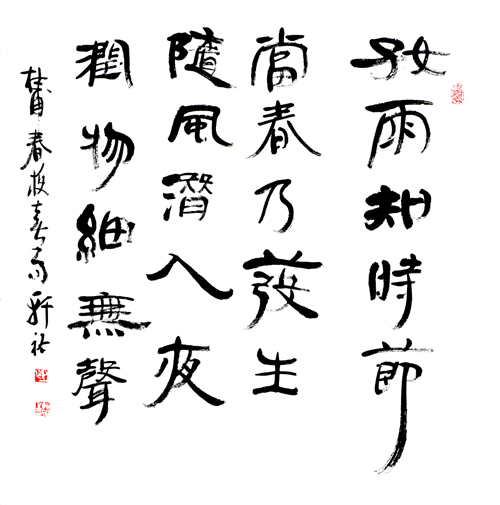 好雨知時節
當春乃發生
隨風潛入夜
潤物細無聲
杜甫春夜喜雨軒